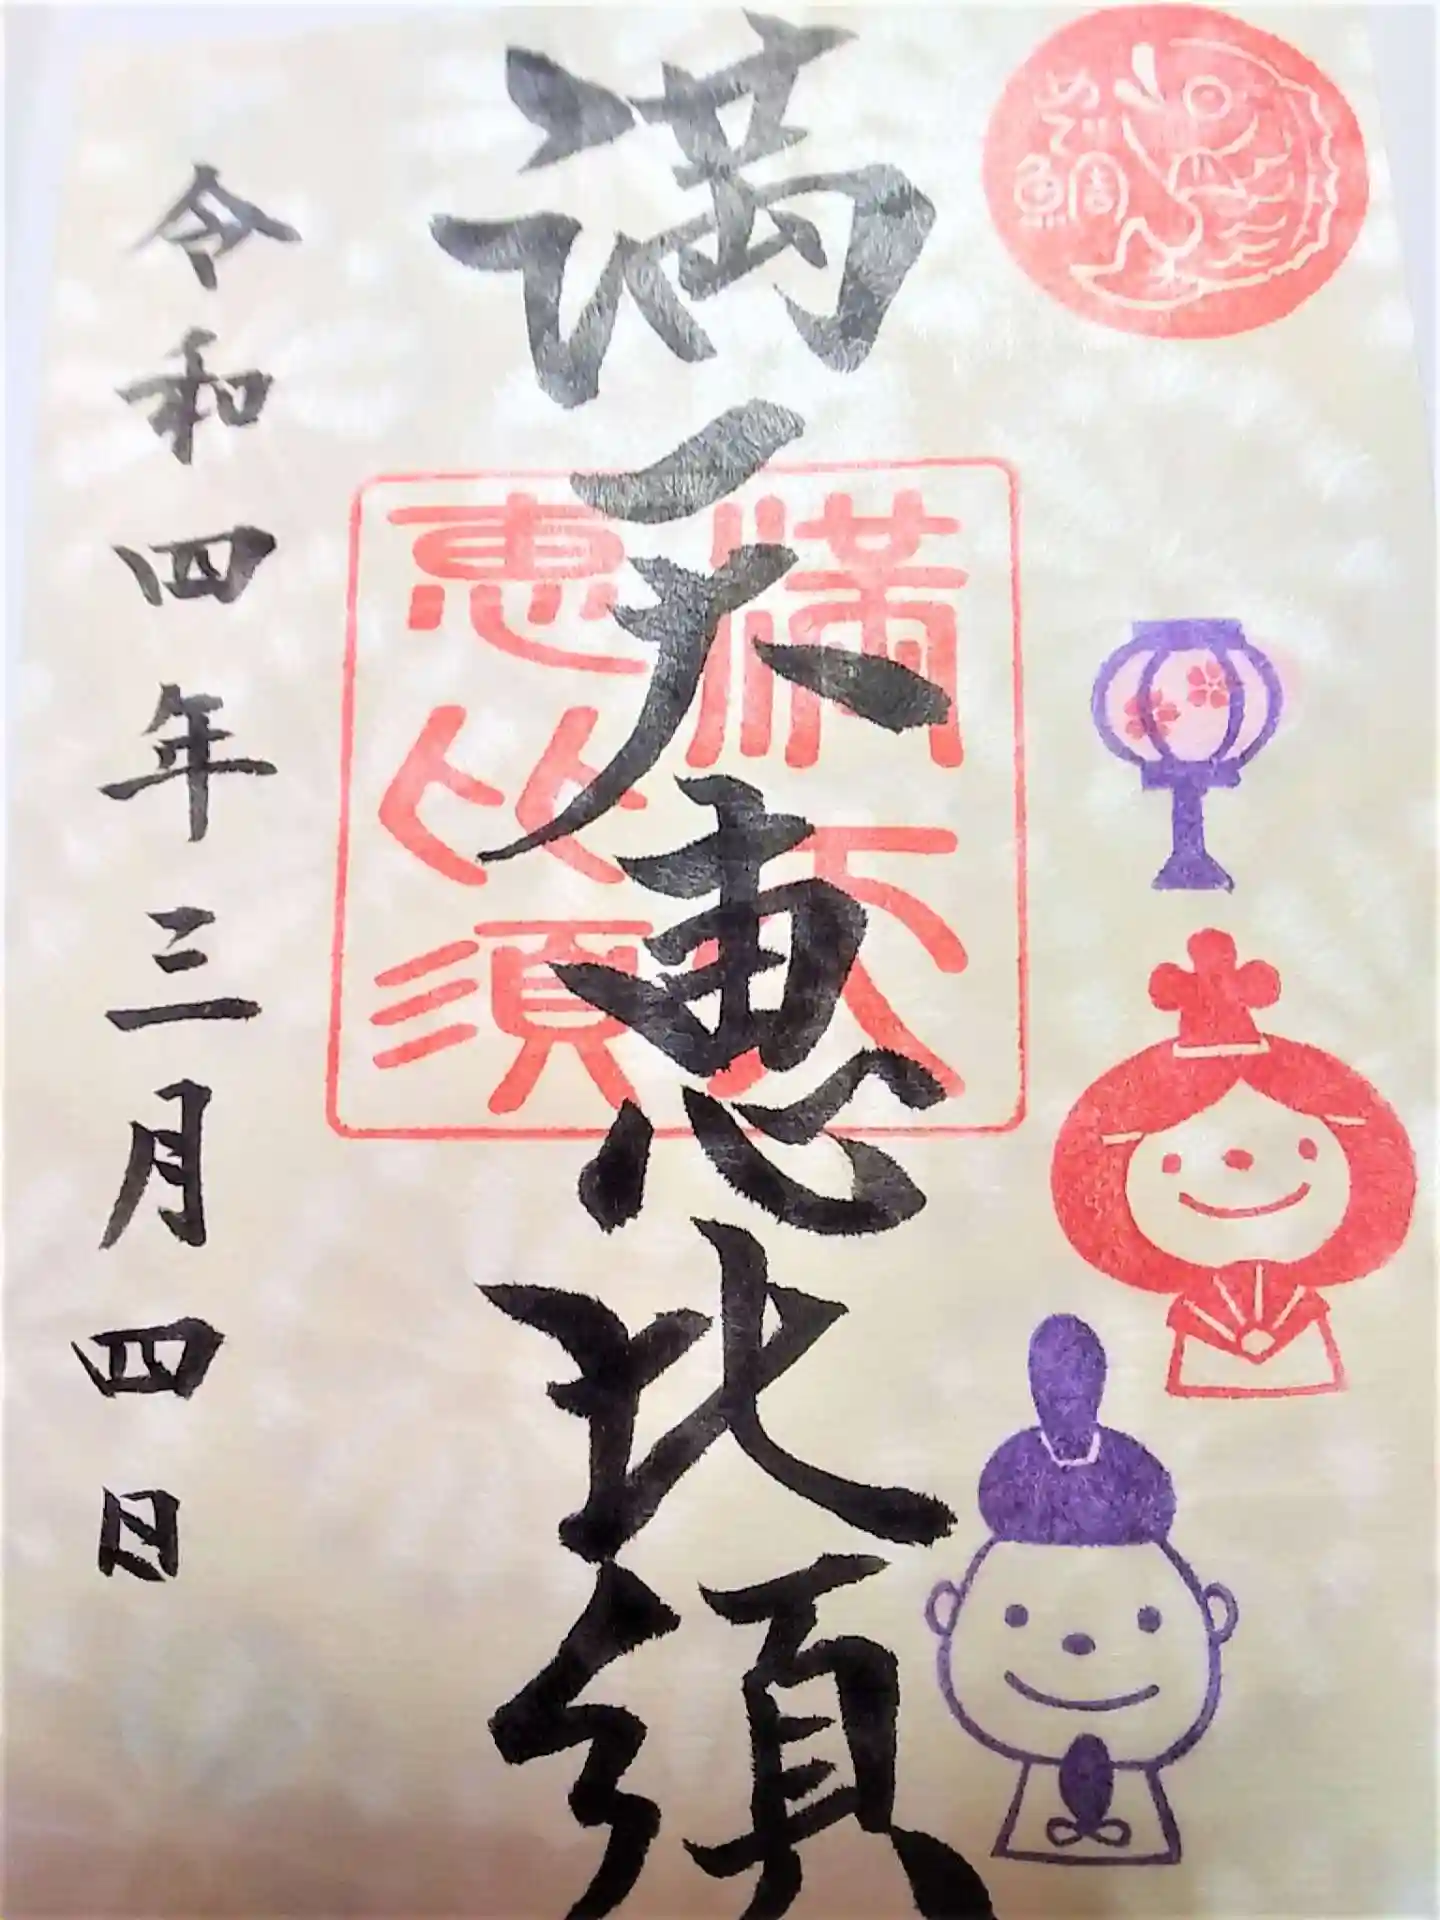 めで
鯛
満天恵比須
満天
恵比須
令和四年三月四日